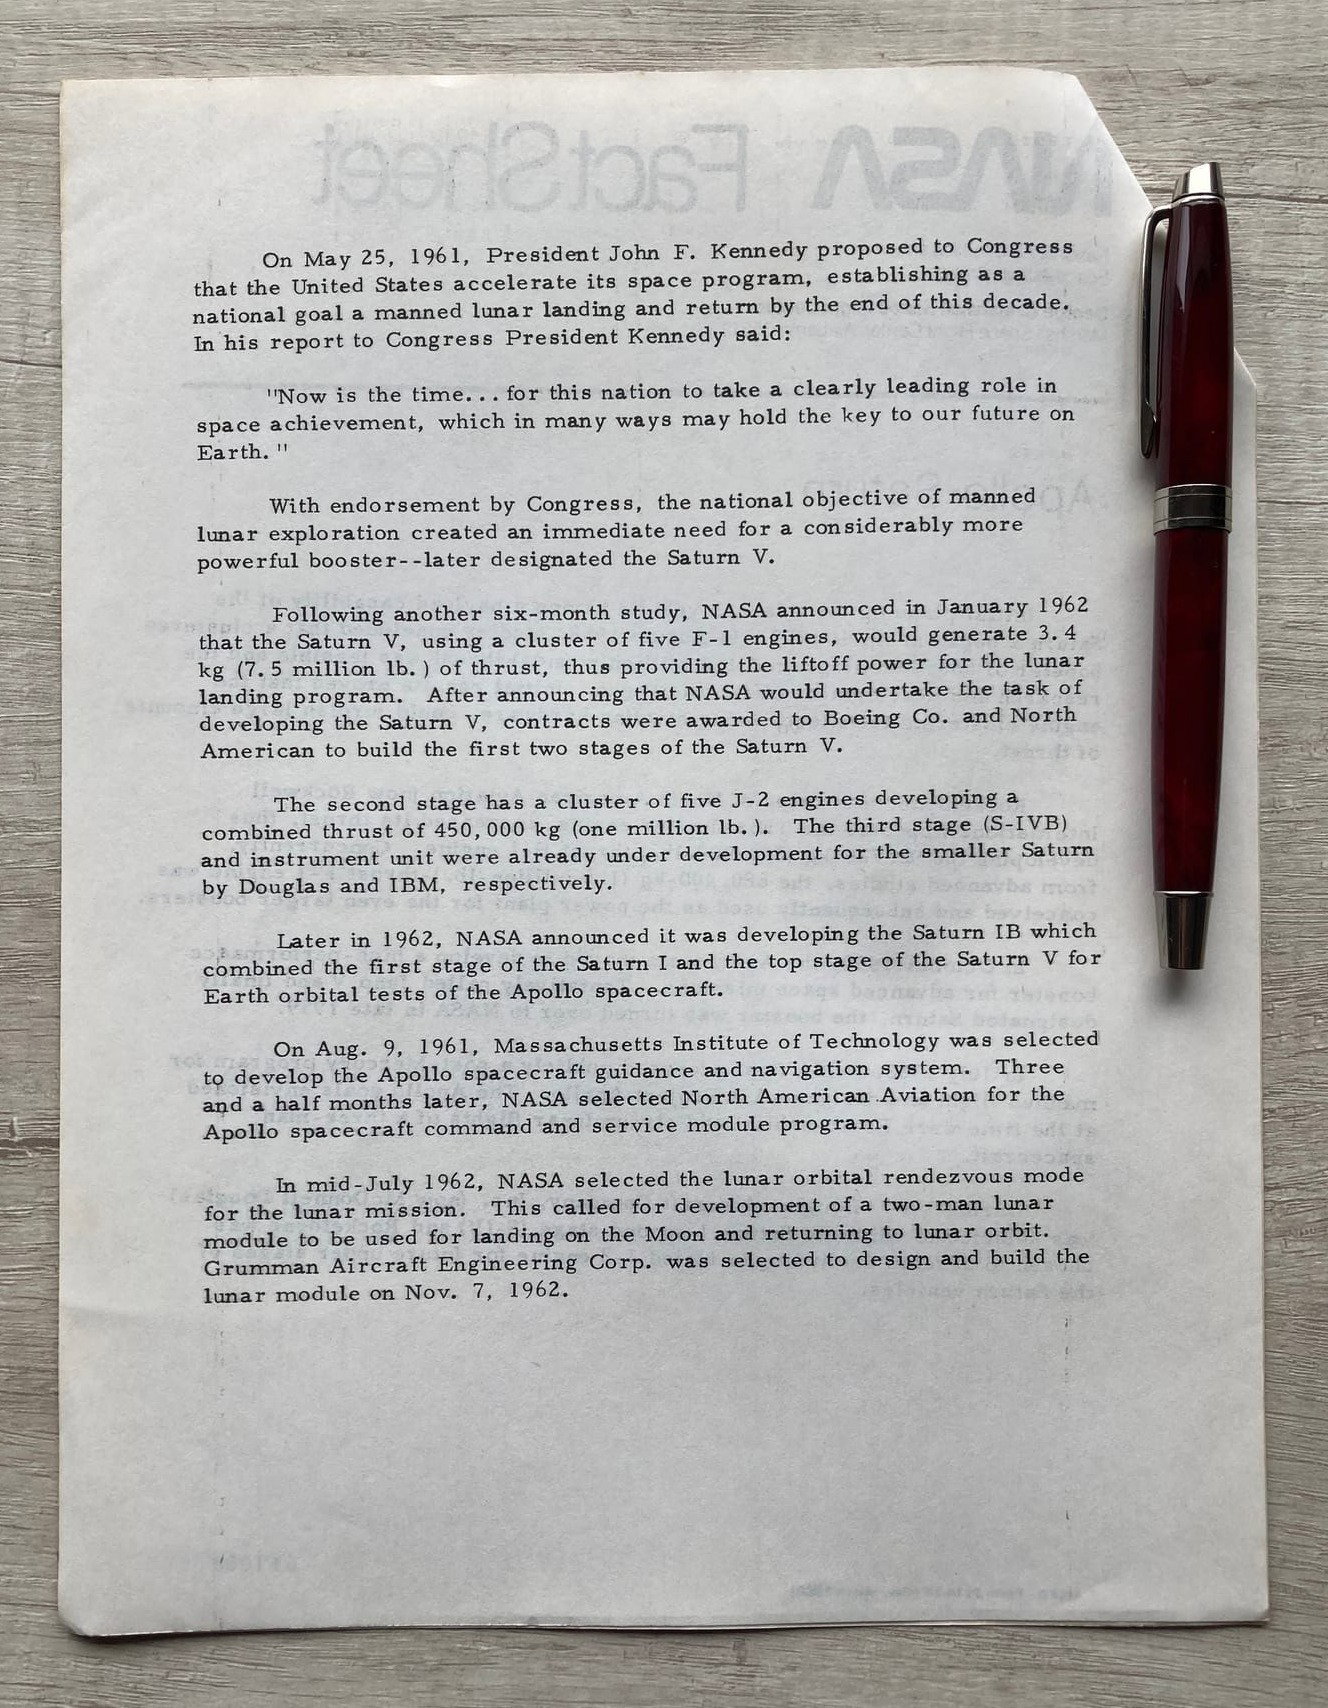 On May 25, 1961, President John F. Kennedy proposed to Congress
that the United States accelerate its space program, establishing as a
national goal a manned lunar landing and return by the end of this decade.
In his report to Congress President Kennedy said:
"Now is the time... for this nation to take a clearly leading role in
space achievement, which in many ways may hold the key to our future on
Earth. "
With endorsement by Congress, the national objective of manned
lunar exploration created an immediate need for a considerably more
powerful booster--later designated the Saturn V.
Following another six-month study, NASA announced in January 1962
that the Saturn V, using a cluster of five F-1 engines, would generate 3.4
kg (7.5 million lb.) of thrust, thus providing the liftoff power for the lunar
landing program. After announcing that NASA would undertake the task of
developing the Saturn V, contracts were awarded to Boeing Co. and North
American to build the first two stages of the Saturn V.
The second stage has a cluster of five J-2 engines developing a
combined thrust of 450,000 kg (one million lb.). The third stage (S-IVB)
and instrument unit were already under development for the smaller Saturn
by Douglas and IBM, respectively.
Later in 1962, NASA announced it was developing the Saturn IB which
combined the first stage of the Saturn I and the top stage of the Saturn V for
Earth orbital tests of the Apollo spacecraft.
On Aug. 9, 1961, Massachusetts Institute of Technology was selected
to develop the Apollo spacecraft guidance and navigation system. Three
and a half months later, NASA selected North American Aviation for the
Apollo spacecraft command and service module program.
In mid-July 1962, NASA selected the lunar orbital rendezvous mode
for the lunar mission. This called for development of a two-man lunar
module to be used for landing on the Moon and returning to lunar orbit.
Grumman Aircraft Engineering Corp. was selected to design and build the
lunar module on Nov. 7, 1962.